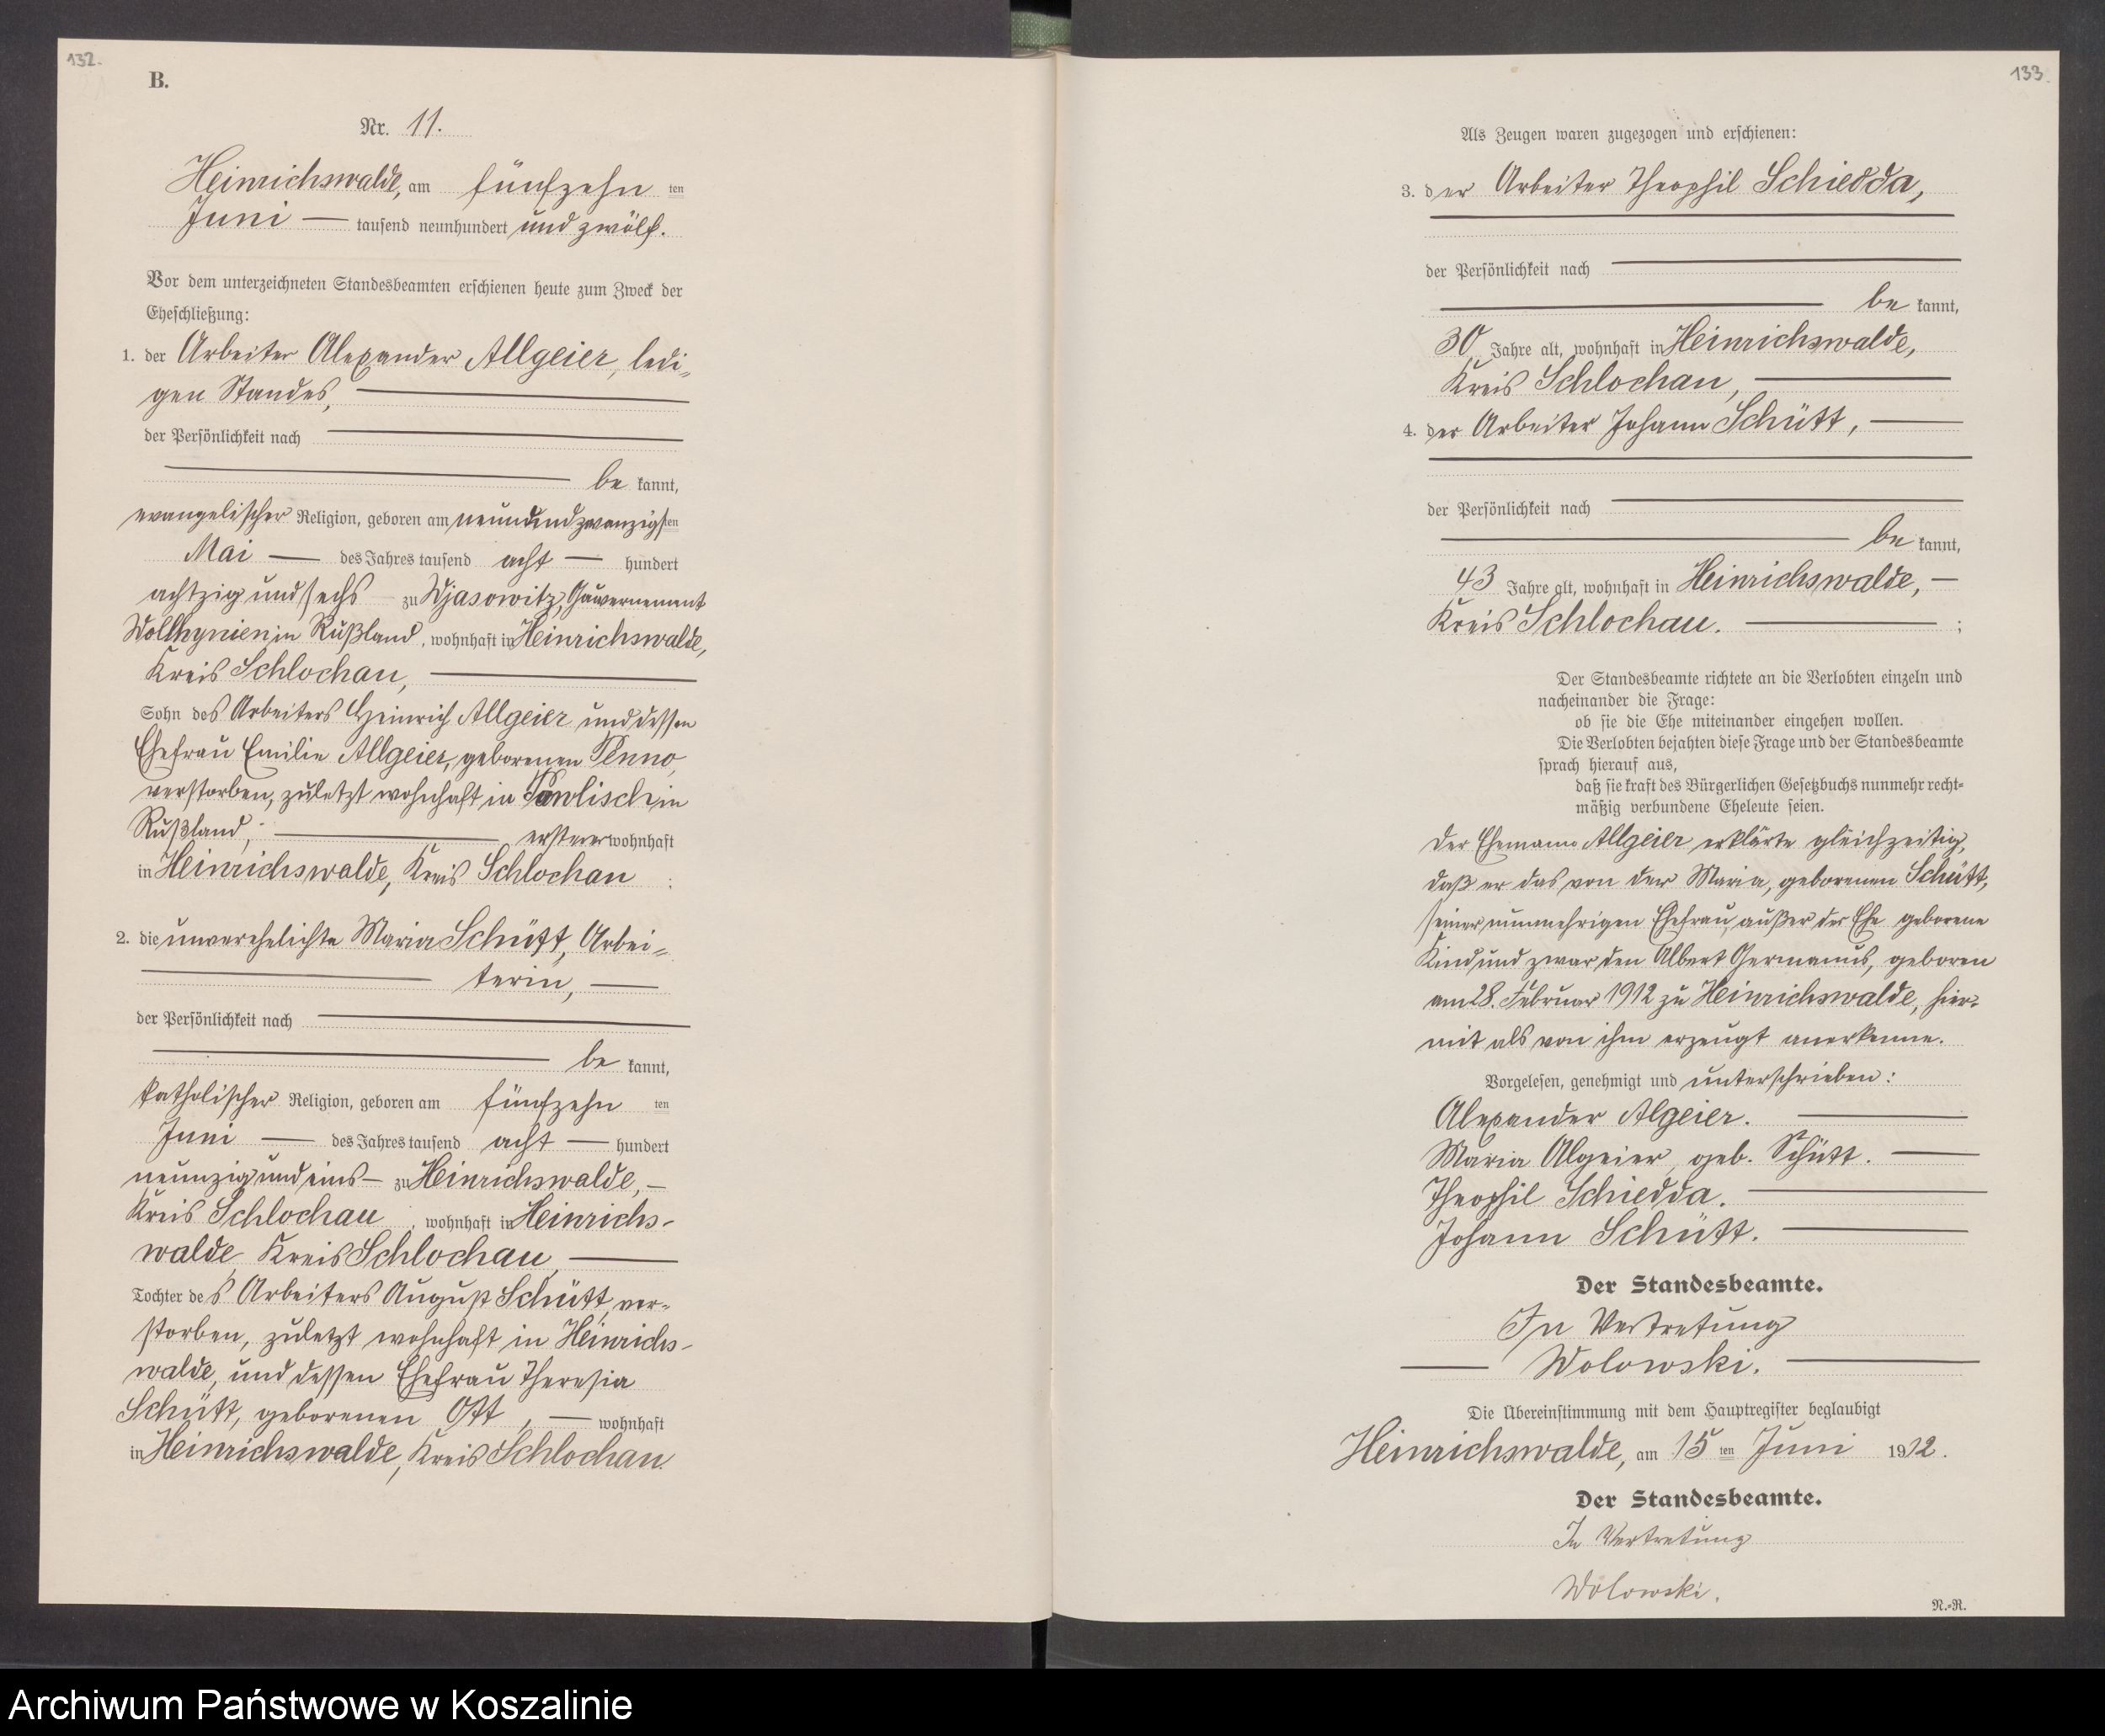 132.
B.
Nr. 11.
Heinrichswalde, am fünfzehn ten
Juni — tausend neunhundert und zwölf.
Vor dem unterzeichneten Standesbeamten erschienen heute zum Zweck der
Eheschließung:
1. der Arbeiter Alexander Allgeier, ledi-
gen Standes,
der Persönlichkeit nach
be kannt,
evangelischer Religion, geboren am neunundzwanzigsten
Mai — des Jahres tausend acht — hundert
achtzig und sechs zu Wjasowitz, Gouvernement
Wollhynien in Rußland, wohnhaft in Heinrichswalde,
Kreis Schlochau,
Sohn des Arbeiters Heinrich Allgeier und dessen
Ehefrau Emilie Allgeier, geborenen Penno,
verstorben, zuletzt wohnhaft in Pawlisch in
Rußland, ersterer wohnhaft
in Heinrichswalde, Kreis Schlochau ;
2. die unverehelichte Maria Schütt, Arbei-
terin, —
der Persönlichkeit nach
be kannt,
katholischer Religion, geboren am fünfzehn ten
Juni — des Jahres tausend acht — hundert
neunzig und eins — zu Heinrichswalde, —
Kreis Schlochau, wohnhaft in Heinrichs-
walde, Kreis Schlochau,
Tochter des Arbeiters August Schütt, ver-
storben, zuletzt wohnhaft in Heinrichs-
walde, und dessen Ehefrau Theresia
Schütt, geborenen Ott, — wohnhaft
in Heinrichswalde, Kreis Schlochau.
133.
Als Zeugen waren zugezogen und erschienen:
3. der Arbeiter Theophil Schiedda,
der Persönlichkeit nach
be kannt,
30 Jahre alt, wohnhaft in Heinrichswalde,
Kreis Schlochau,
4. der Arbeiter Johann Schütt, —
der Persönlichkeit nach
be kannt,
43 Jahre alt, wohnhaft in Heinrichswalde, —
Kreis Schlochau. — ;
Der Standesbeamte richtete an die Verlobten einzeln und
nacheinander die Frage:
ob sie die Ehe miteinander eingehen wollen.
Die Verlobten bejahten diese Frage und der Standesbeamte
sprach hierauf aus,
daß sie kraft des Bürgerlichen Gesetzbuchs nunmehr recht-
mäßig verbundene Eheleute seien.
Der Ehemann Allgeier erklärte gleichzeitig,
daß er das von der Maria, geborenen Schütt,
seiner nunmehrigen Ehefrau, außer der Ehe geborene
Kind und zwar den Albert Germanus, geboren
am 28. Februar 1912 zu Heinrichswalde, hier-
mit als von ihm erzeugt anerkenne.
Vorgelesen, genehmigt und unterschrieben:
Alexander Algeier. —
Maria Algeier, geb. Schütt. —
Theophil Schiedda. —
Johann Schütt. —
Der Standesbeamte.
In Vertretung
— Wolowski. —
Die Übereinstimmung mit dem Hauptregister beglaubigt
Heinrichswalde, am 15 ten Juni 1912.
Der Standesbeamte.
In Vertretung
Wolowski.
N.-R.
Archiwum Państwowe w Koszalinie